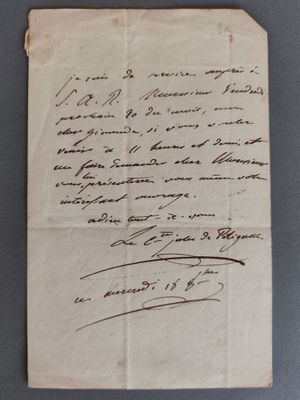 je suis de service auprès de
S. A. R. Monsieur Vendredi
prochain 20 du mois, mon
cher Gironde, si vous voulez
venir à 11 heures et demi, et
me faire demander chez Monsieur
lui
vous présenterez vous même votre
intéressant ouvrage.
adieu tout à vous
Le Cte jules de Polignac
ce mercredi 18 8bre